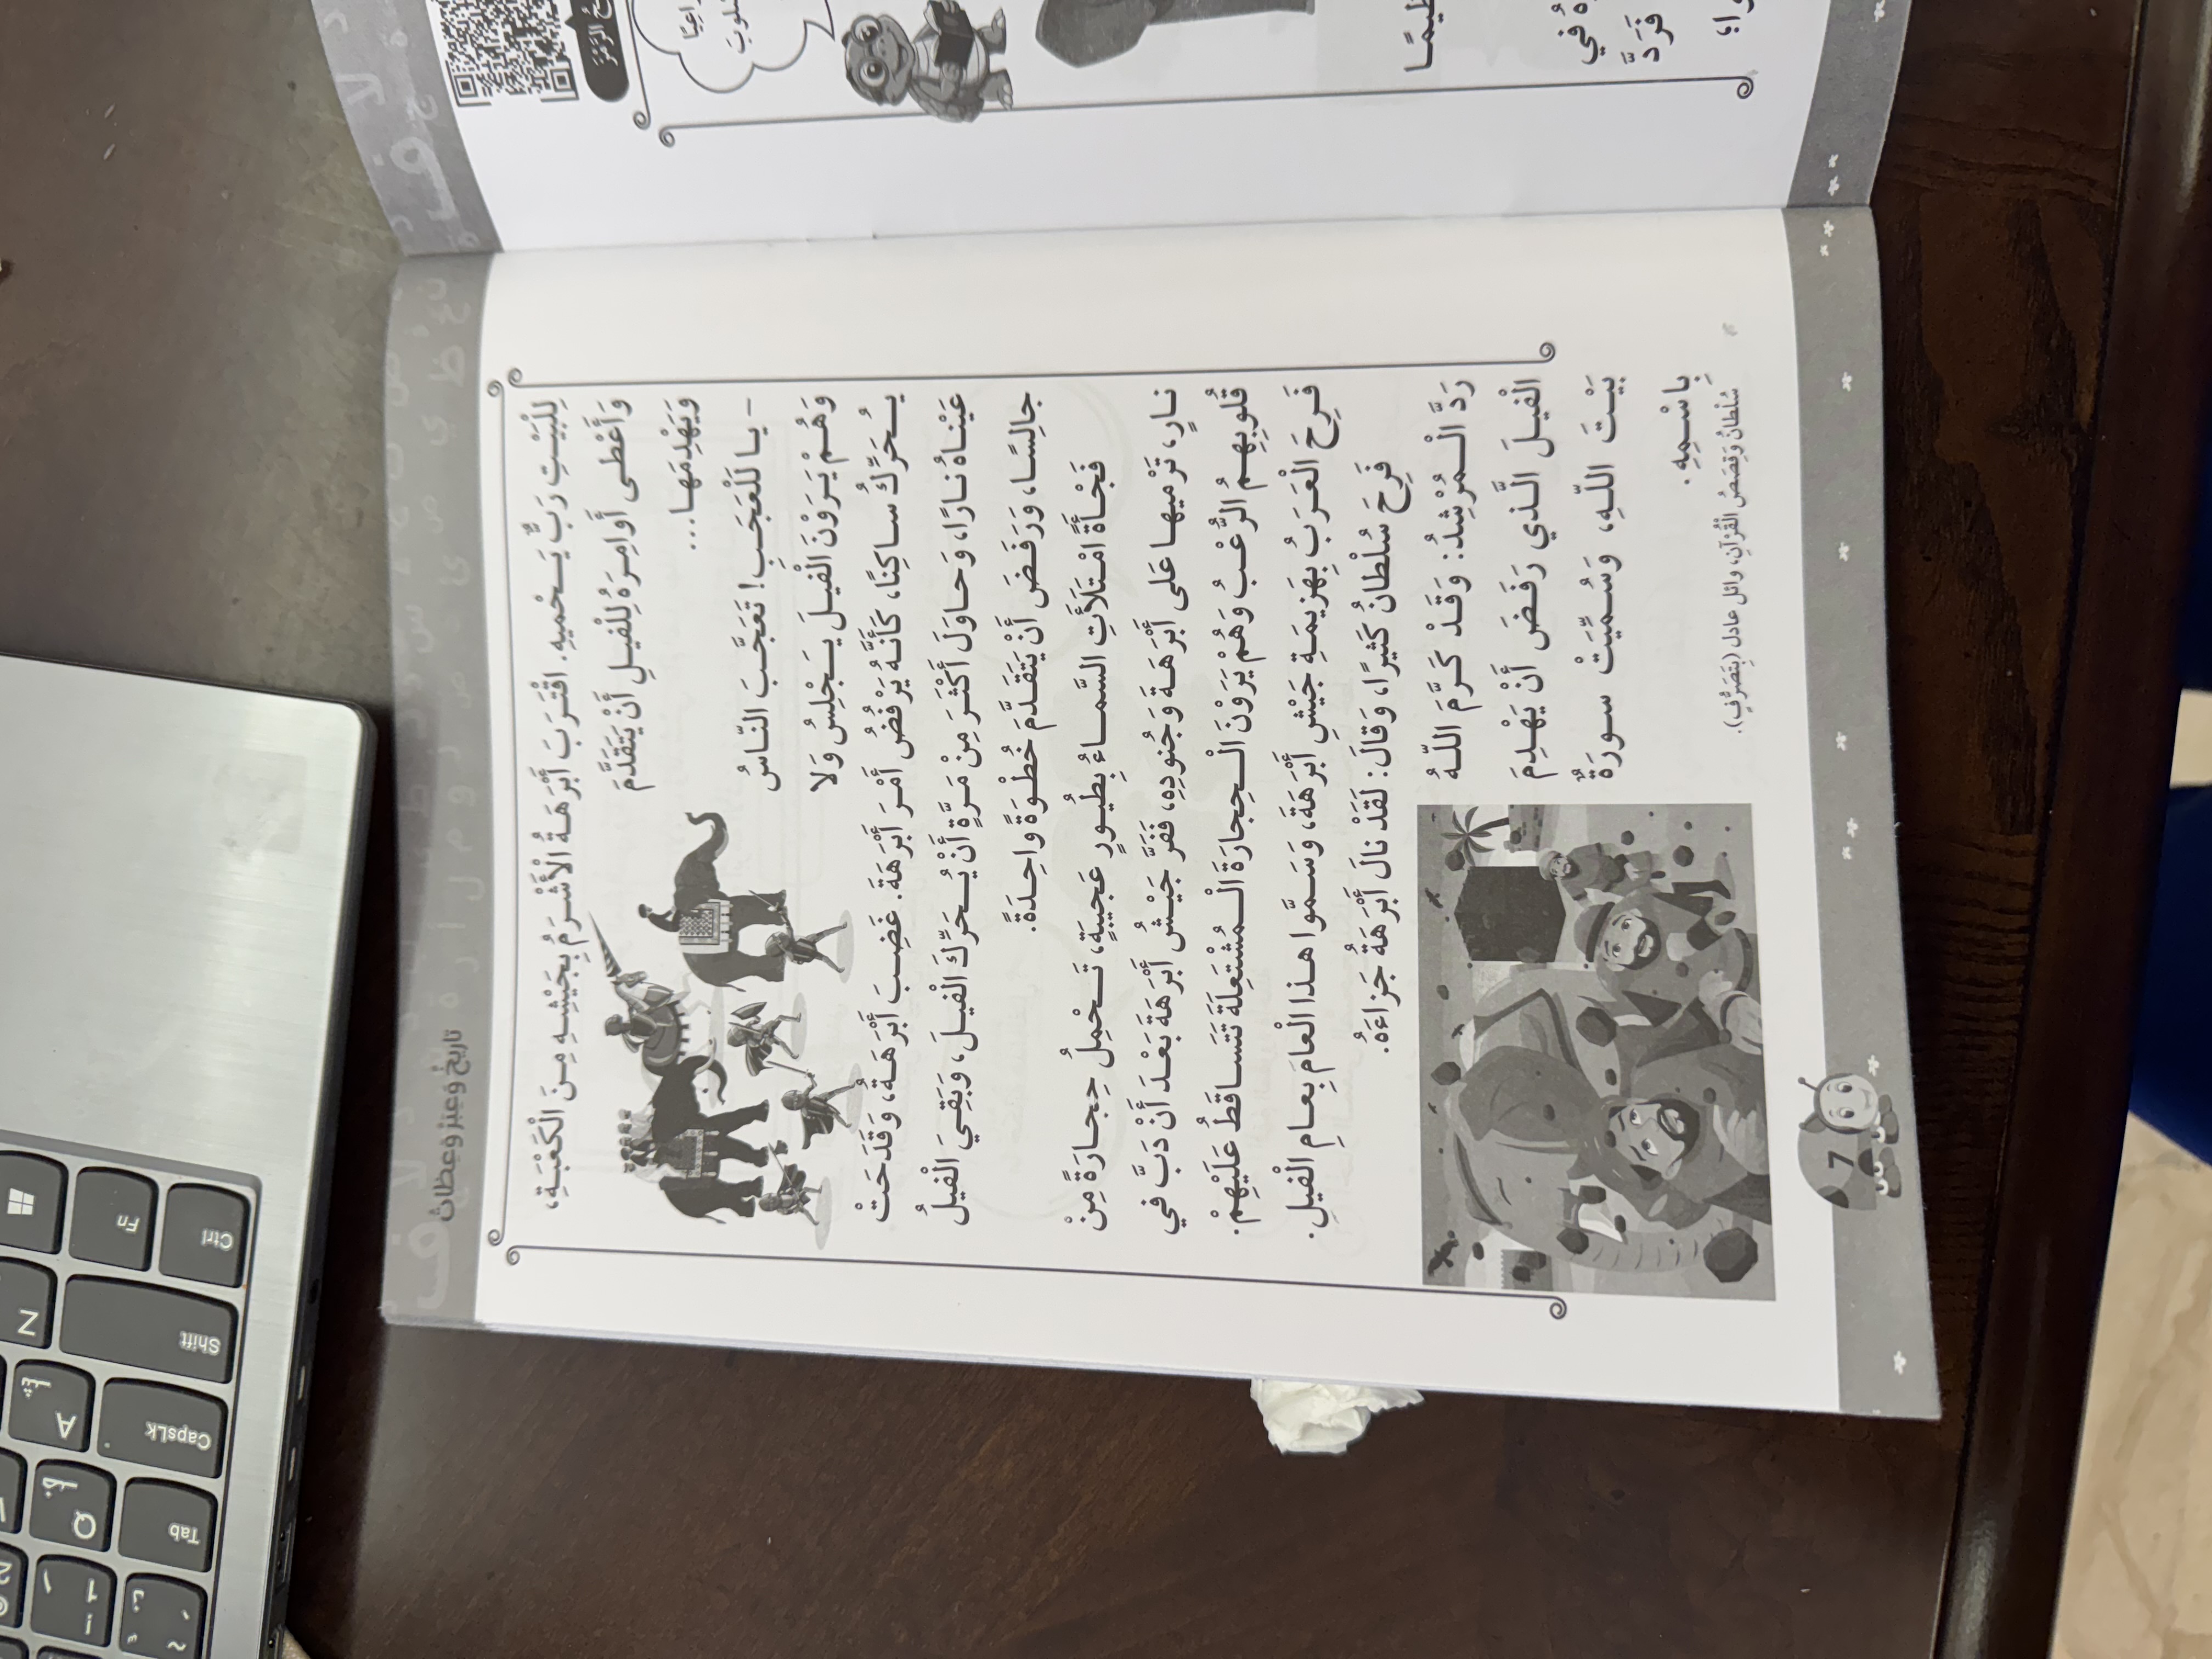 تاريخٌ وعِبَرٌ وعِظاتٌ
لِلْبَيْتِ رَبٌّ يَحْميهِ. اقْتَرَبَ أَبْرَهَةُ الْأَشْرَمُ بِجَيْشِهِ مِنَ الْكَعْبَةِ،
وَأَعْطى أَوامِرَهُ لِلْفيلِ أَنْ يَتَقَدَّمَ
وَيَهْدِمَهـا...
- يا لَلْعَجَبِ! تَعَجَّبَ النّاسُ
وَهُمْ يَرَوْنَ الْفيلَ يَجْلِسُ وَلا
يُحَرِّكُ ساكِنًا، كَأَنَّهُ يَرْفُضُ أَمْرَ أَبْرَهَةَ. غَضِبَ أَبْرَهَةُ، وَقَدَحَتْ
عَيْناهُ نارًا، وَحاوَلَ أَكْثَرَ مِنْ مَرَّةٍ أَنْ يُحَرِّكَ الْفيلَ، وَبَقِيَ الْفيلُ
جالِسًا، وَرَفَضَ أَنْ يَتَقَدَّمَ خُطْوَةً واحِدَةً.
فَجْأَةً امْتَلَأَتِ السَّماءُ بِطُيورٍ عَجيبَةٍ، تَحْمِلُ حِجارَةً مِنْ
نارٍ، تَرْميها عَلى أَبْرَهَةَ وَجُنودِهِ، فَفَرَّ جَيْشُ أَبْرَهَةَ بَعْدَ أَنْ دَبَّ في
قُلوبِهِمُ الرُّعْبُ وَهُمْ يَرَوْنَ الْحِجارَةَ الْمُشْتَعِلَةَ تَتَساقَطُ عَلَيْهِمْ.
فَرِحَ الْعَرَبُ بِهَزيمَةِ جَيْشِ أَبْرَهَةَ، وَسَمَّوْا هذا الْعامَ بِعامِ الْفيلِ.
فَرِحَ سُلْطانُ كَثيرًا، وَقالَ: لَقَدْ نالَ أَبْرَهَةُ جَزاءَهُ.
رَدَّ الْمُرْشِدُ: وَقَدْ كَرَّمَ اللّهُ
الْفيلَ الَّذي رَفَضَ أَنْ يَهْدِمَ
بَيْتَ اللّهِ، وَسُمِّيَتْ سورَةٌ
بِاسْمِهِ.
سُلْطانُ وَقِصَصُ الْقُرْآنِ، وائل عادل (بِتَصَرُّفٍ).
7
ظيمًا
هُ في
فَرَدَّ
وا؛
Ctrl
Fn
Shift
Z
CapsLk
A
Tab
Q
!
1
~